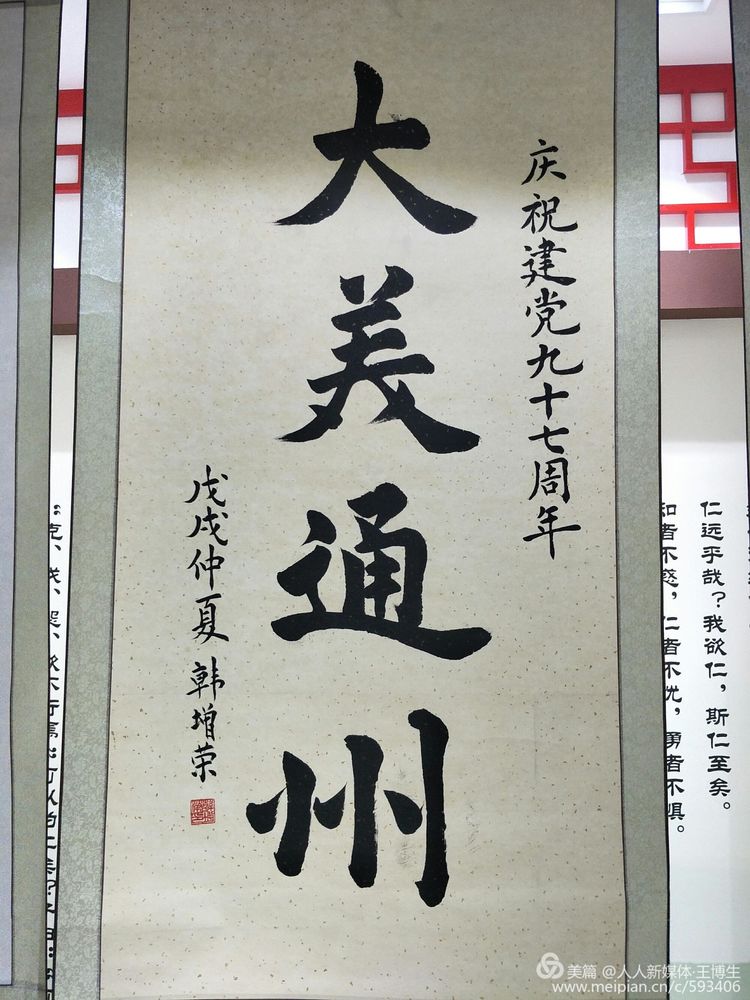 庆祝建党九十七周年
大美通州
戊戌仲夏 韩增荣
仁远乎哉？我欲仁，斯仁至矣。
知者不惑，仁者不忧，勇者不惧。
美篇 @人人新媒体·王博生
www.meipian.cn/c/593406